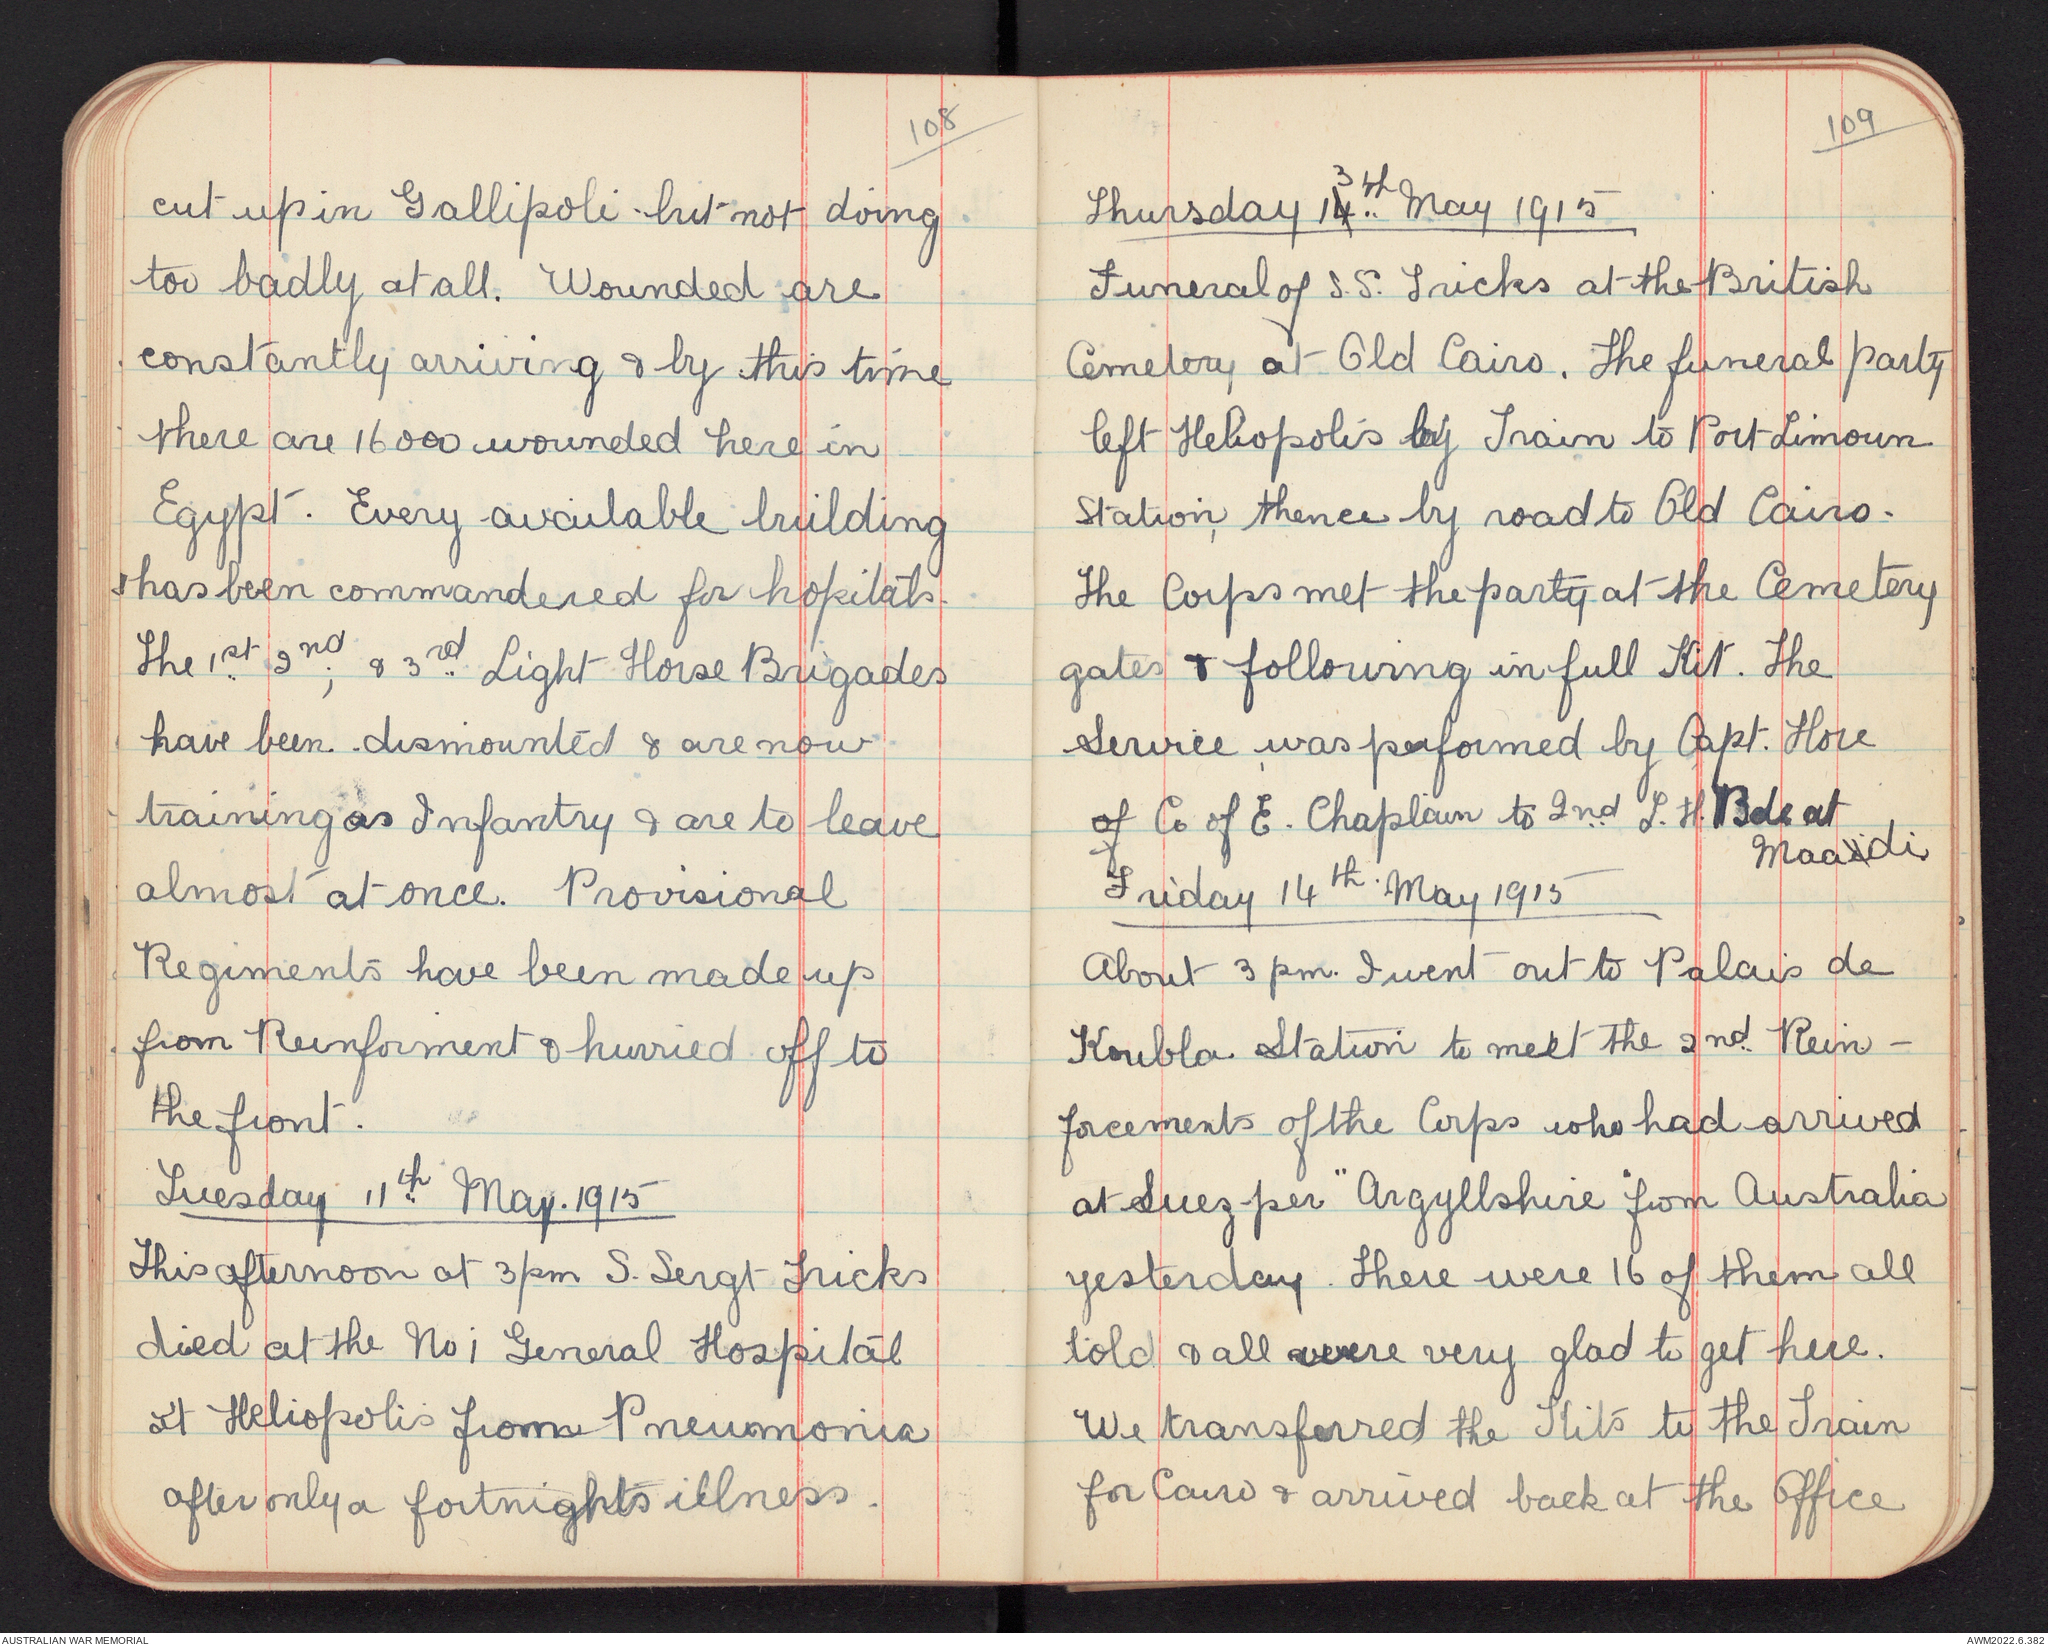 108
cut up in Gallipoli but not doing
too badly at all. Wounded are
constantly arriving & by this time
there are 16000 wounded here in
Egypt. Every available building
has been commandered for hopitals.
The 1st 2nd, & 3rd Light Horse Brigades
have been dismounted & are now
training as Infantry & are to leave
almost at once. Provisional
Regiments have been made up
from Reinforment & hurried off to
the front.
Tuesday 11th May. 1915
This afternoon at 3pm S. Sergt Tricks
died at the No 1 General Hospital
at Heliopolis from Pneumonia
after only a fortnights illness.
109
Thursday 13th May 1915
Funeral of S.S. Tricks at the British
Cemetery at Old Cairo. The funeral party
left Heliopolis by Train to Port Limoun
Station, thence by road to Old Cairo.
The Corps met the party at the Cemetery
gates & following in full Kit. The
Service was performed by Capt. Hore
of C of E. Chaplain to 2nd L.H. Bde at
Maadi
Friday 14th May 1915
About 3 pm. I went out to Palais de
Koubla Station to meet the 2nd Rein-
forcements of the Corps who had arrived
at Suez per "Argyllshire" from Australia
yesterday. There were 16 of them all
told & all were very glad to get here.
We transferred the Kits to the Train
for Cairo & arrived back at the Office
AUSTRALIAN WAR MEMORIAL
AWM2022.6.382